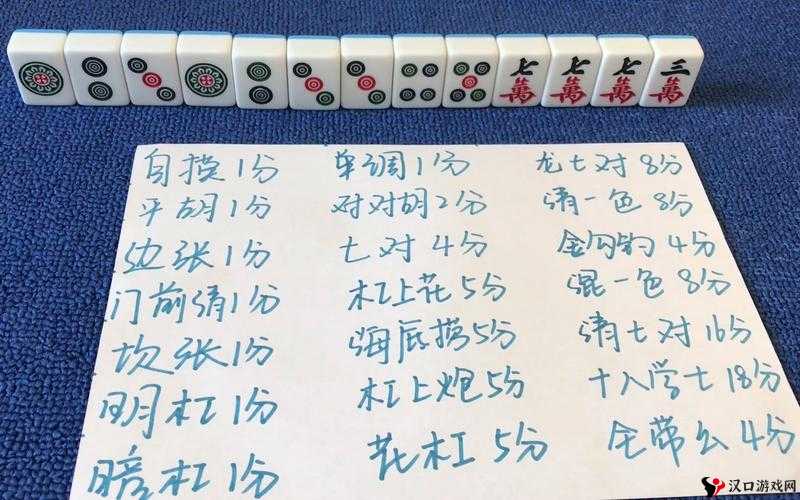 七萬 七萬 七萬 三萬
自摸1分 单调1分 龙七对8分
平胡1分 对对胡2分 清一色8分
边张1分 七对4分 金勾钓4分
门前清1分 杠上花5分 混一色8分
坎张1分 海底捞5分 清七对16分
明杠1分 杠上炮5分 十八学士18分
暗杠1分 花杠5分 全带幺4分
汉口游戏网